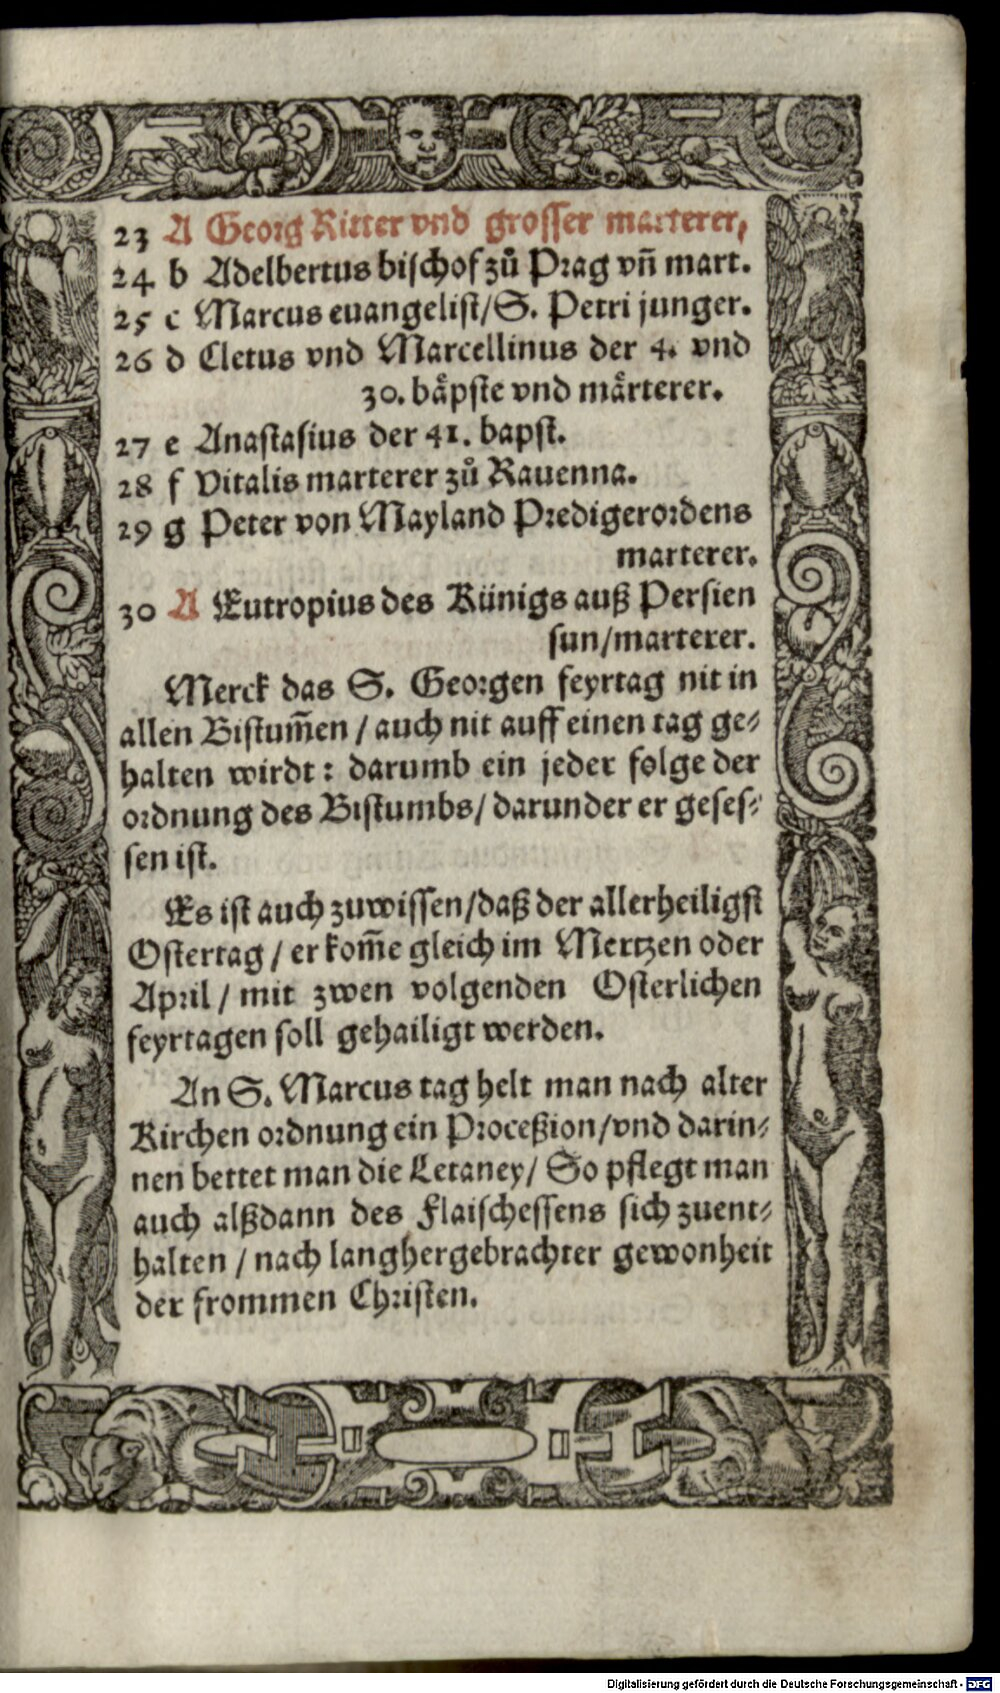 23 A Georg Ritter vnd grosser marterer,
24 b Adelbertus bischof zů Prag vñ mart.
25 c Marcus euangelist/S. Petri junger.
26 d Cletus vnd Marcellinus der 4. vnd
30. bäpste vnd märterer.
27 e Anastasius der 41. bapst.
28 f Vitalis marterer zů Rauenna.
29 g Peter von Mayland Predigerordens
marterer.
30 A Eutropius des Künigs auß Persien
sun/marterer.
Merck das S. Georgen feyrtag nit in
allen Bistum̃en / auch nit auff einen tag ge⸗
halten wirdt: darumb ein jeder folge der
ordnung des Bistumbs/ darunder er geses⸗
sen ist.
Es ist auch zuwissen/daß der allerheiligst
Ostertag / er kom̃e gleich im Mertzen oder
April / mit zwen volgenden Osterlichen
feyrtagen soll gehailigt werden.
An S. Marcus tag helt man nach alter
Kirchen ordnung ein Proceßion/vnd darin⸗
nen bettet man die Letaney/ So pflegt man
auch alßdann des Flaischessens sich zuent⸗
halten / nach langhergebrachter gewonheit
der frommen Christen.
Digitalisierung gefördert durch die Deutsche Forschungsgemeinschaft - DFG